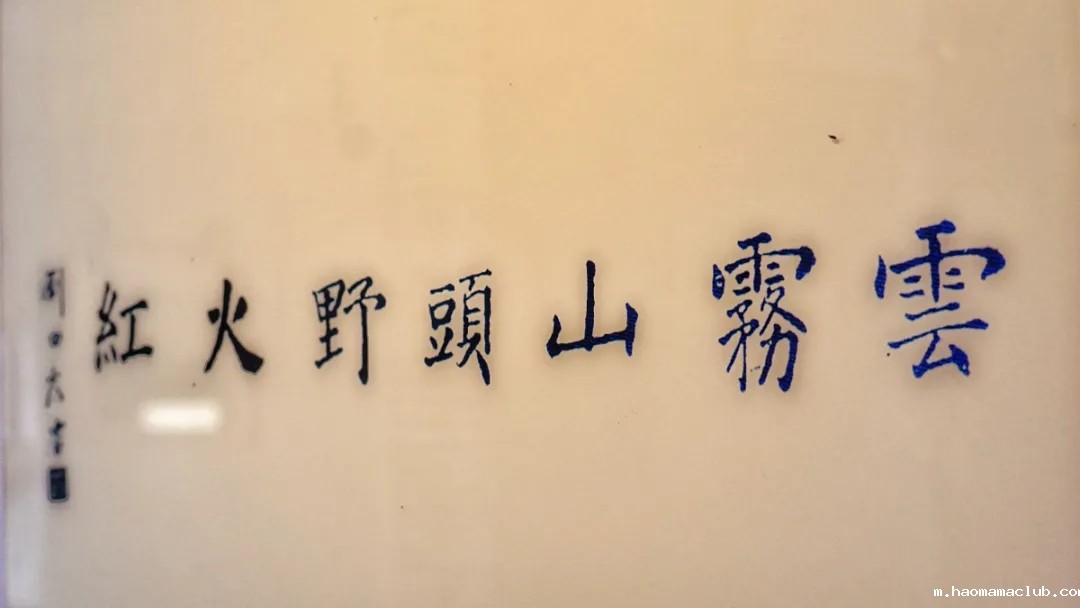 雲霧山頭野火紅
m.haomamaclub.com